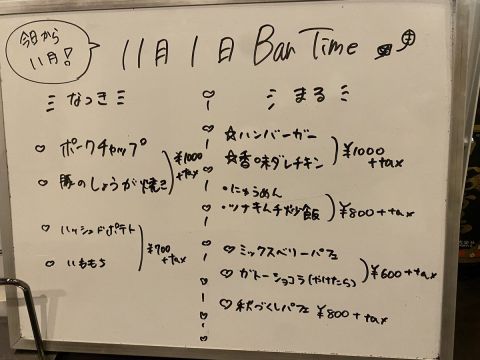 今日から
11月!
11月1日 Bar Time
なつき
♡ ポークチャップ
♡ 豚のしょうが焼き
¥1000
+tax
♡ ハッシュドポテト
♡ いももち
¥700
+tax
まる
☆ハンバーガー
☆香味ダレチキン
¥1000
+tax
・にゅうめん
・ツナキムチ炒飯
¥800+tax
♡ ミックスベリーパフェ
♡ ガトーショコラ(やけたら)
¥600+tax
♡ 秋づくしパフェ ¥800+tax